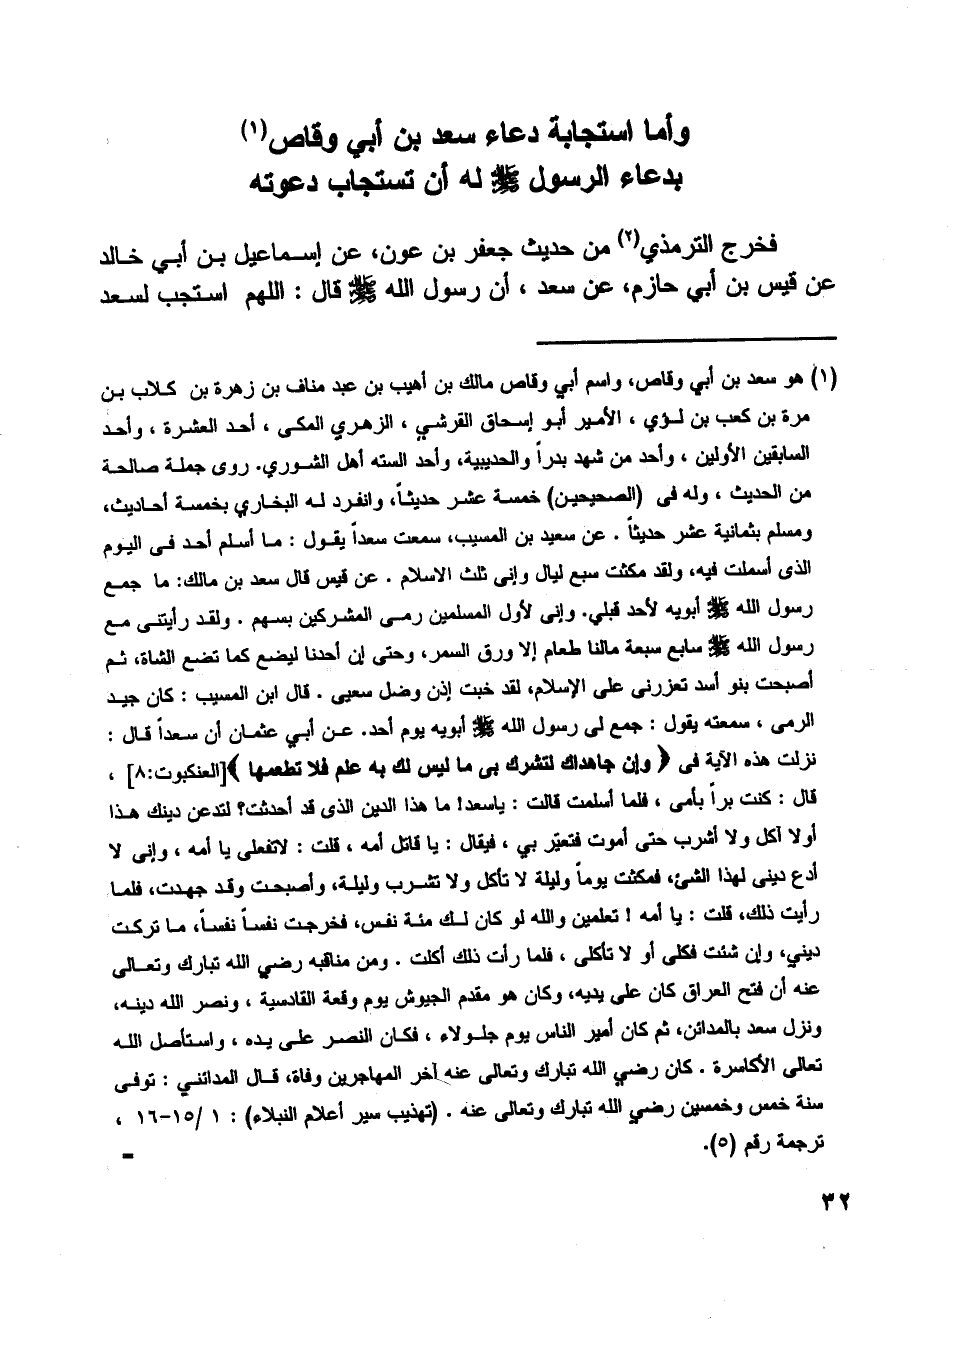 وأما استجابة دعاء سعد بن أبي وقاص(١)
بدعاء الرسول ﷺ له أن تستجاب دعوته
فخرج الترمذي(٢) من حديث جعفر بن عون، عن إسماعيل بن أبي خالد
عن قيس بن أبي حازم، عن سعد ، أن رسول الله ﷺ قال : اللهم استجب لسعد
(١) هو سعد بن أبي وقاص، واسم أبي وقاص مالك بن أهيب بن عبد مناف بن زهرة بن كلاب بن
مرة بن كعب بن لؤي ، الأمير أبو إسحاق القرشي ، الزهري المكى ، أحد العشرة ، وأحد
السابقين الأولين ، وأحد من شهد بدراً والحديبية، وأحد السته أهل الشورى. روى جملة صالحة
من الحديث ، وله فى (الصحيحين) خمسة عشر حديثاً، وانفرد له البخاري بخمسة أحاديث،
ومسلم بثمانية عشر حديثاً . عن سعيد بن المسيب، سمعت سعداً يقول : ما أسلم أحد فى اليوم
الذى أسملت فيه، ولقد مكثت سبع ليال وإنى ثلث الاسلام . عن قيس قال سعد بن مالك: ما جمع
رسول الله ﷺ أبويه لأحد قبلي. وإنى لأول المسلمين رمى المشركين بسهم . ولقد رأيتنى مع
رسول الله ﷺ سابع سبعة مالنا طعام إلا ورق السمر، وحتى إن أحدنا ليضع كما تضع الشاة، ثم
أصبحت بنو أسد تعزرنى على الإسلام، لقد خبت إذن وضل سعيى . قال ابن المسيب : كان جيد
الرمى ، سمعته يقول : جمع لى رسول الله ﷺ أبويه يوم أحد. عن أبي عثمان أن سعداً قال :
نزلت هذه الآية فى ﴿ وإن جاهداك لتشرك بى ما ليس لك به علم فلا تطعمها ﴾[العنكبوت:٨] ،
قال : كنت براً بأمى ، فلما أسلمت قالت : ياسعد! ما هذا الدين الذى قد أحدثت؟ لتدعن دينك هذا
أولا آكل ولا أشرب حتى أموت فتعيّر بي ، فيقال : يا قاتل أمه ، قلت : لاتفعلى يا أمه ، وإنى لا
أدع دينى لهذا الشئ، فمكثت يوماً وليلة لا تأكل ولا تشرب وليلة، وأصبحت وقد جهدت، فلما
رأيت ذلك، قلت : يا أمه ! تعلمين والله لو كان لك مئة نفس، فخرجت نفساً نفساً، ما تركت
ديني، وإن شئت فكلى أو لا تأكلى ، فلما رأت ذلك أكلت . ومن مناقبه رضي الله تبارك وتعالى
عنه أن فتح العراق كان على يديه، وكان هو مقدم الجيوش يوم وقعة القادسية ، ونصر الله دينه،
ونزل سعد بالمدائن، ثم كان أمير الناس يوم جلولاء ، فكان النصر على يده ، واستأصل الله
تعالى الأكاسرة . كان رضي الله تبارك وتعالى عنه آخر المهاجرين وفاة، قال المدائني : توفى
سنة خمس وخمسين رضي الله تبارك وتعالى عنه . (تهذيب سير أعلام النبلاء) : ١ /١٥-١٦ ،
ترجمة رقم (٥). =
٣٢